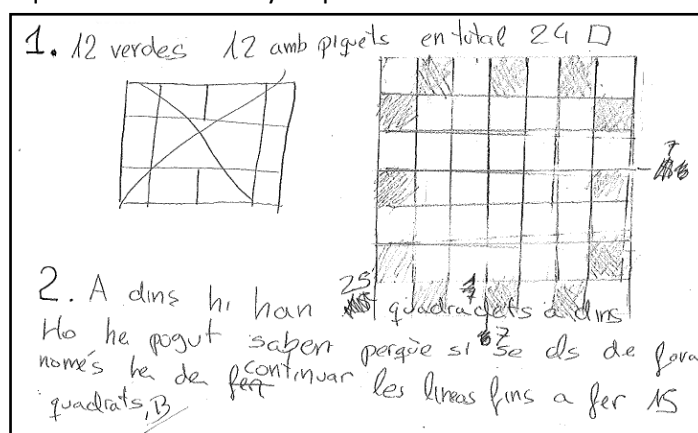 1. 12 verdes 12 amb piquets en total 24 □
7
2. A dins hi han 25 quadradets a dins
Ho he pogut saben perquè si se els de fora
només he de continuar les lineas fins a fer 15
quadrats, B
7